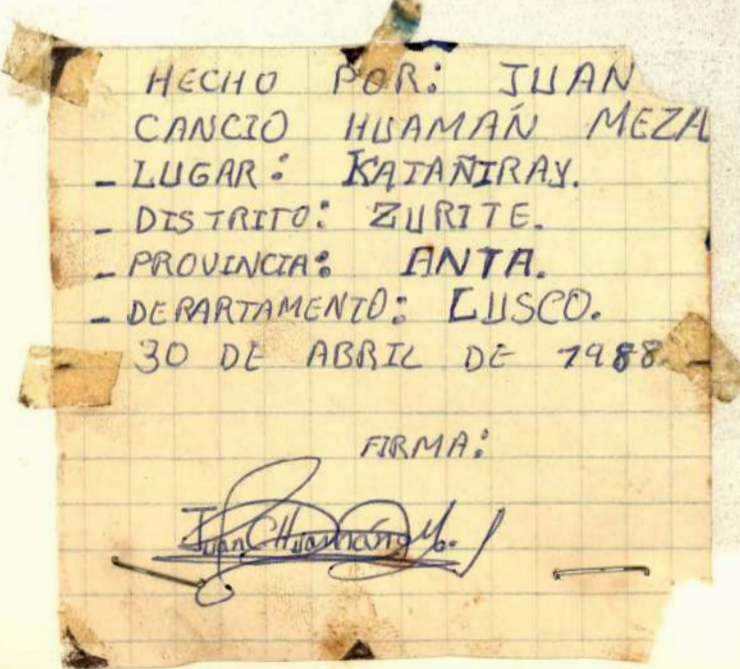 HECHO POR: JUAN
CANCIO HUAMÁN MEZA
- LUGAR: KATAÑIRAY.
- DISTRITO: ZURITE.
- PROVINCIA: ANTA.
- DEPARTAMENTO: CUSCO.
30 DE ABRIL DE 1988
FIRMA:
Juan C Huamán M.